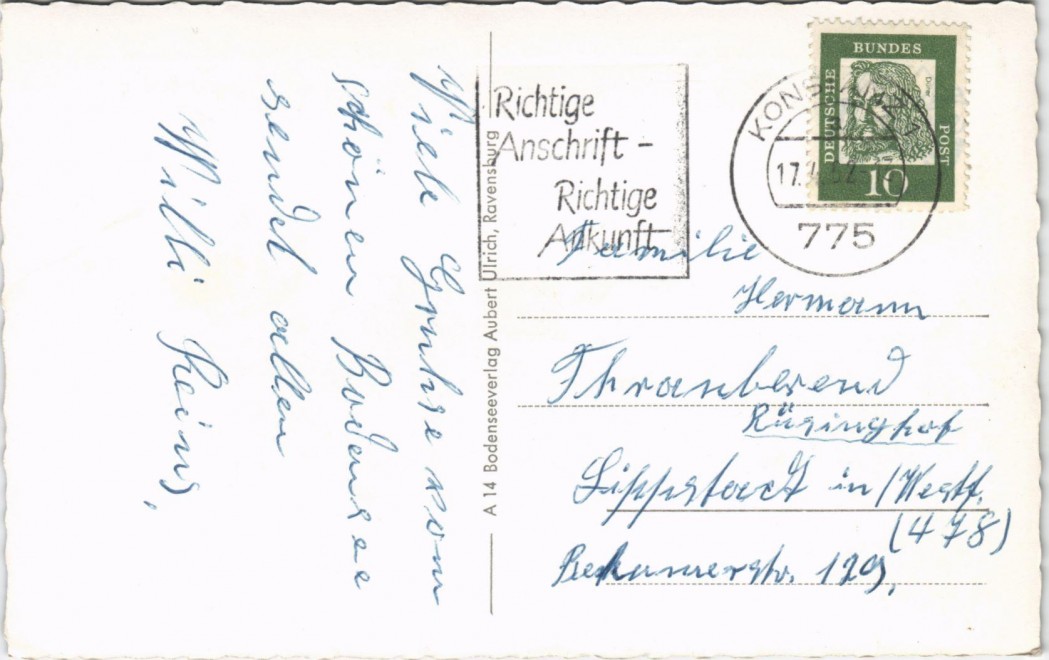 Viele Grüße vom
schönen Bodensee
sendet allen
Willi Reins,
A 14 Bodenseeverlag Aubert Ulrich, Ravensburg
Richtige
Anschrift -
Richtige
Ankunft
DEUTSCHE BUNDES POST
10
17.
775
Familie
Hermann
Rüsinghof
Lippstadt in/Westf.
(478)
129,